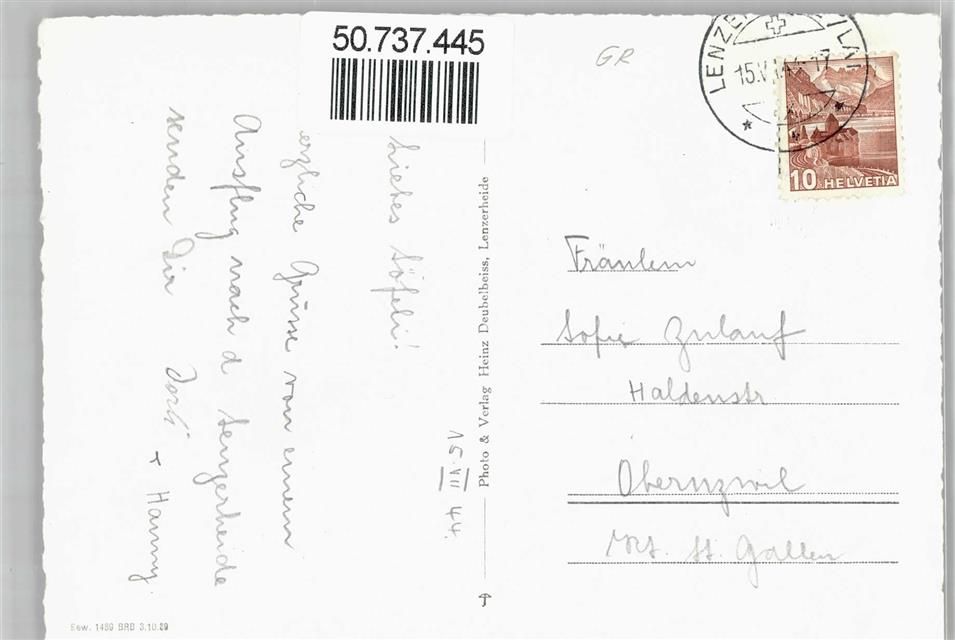 50.737.445
GR
LENZE
15.V
17
10 HELVETIA
15.VII 44.
Liebes Söfeli!
erzliche Grüsse von einem
Ausflug nach d Lenzerheide
senden Dir
+ Hanny.
Photo & Verlag Heinz Deubelbeiss, Lenzerheide
Fräulein
Sofie Zulauf
Haldenstr
Oberuzwil
Kt. St. Gallen
Bew. 1489 BRB 3.10.39